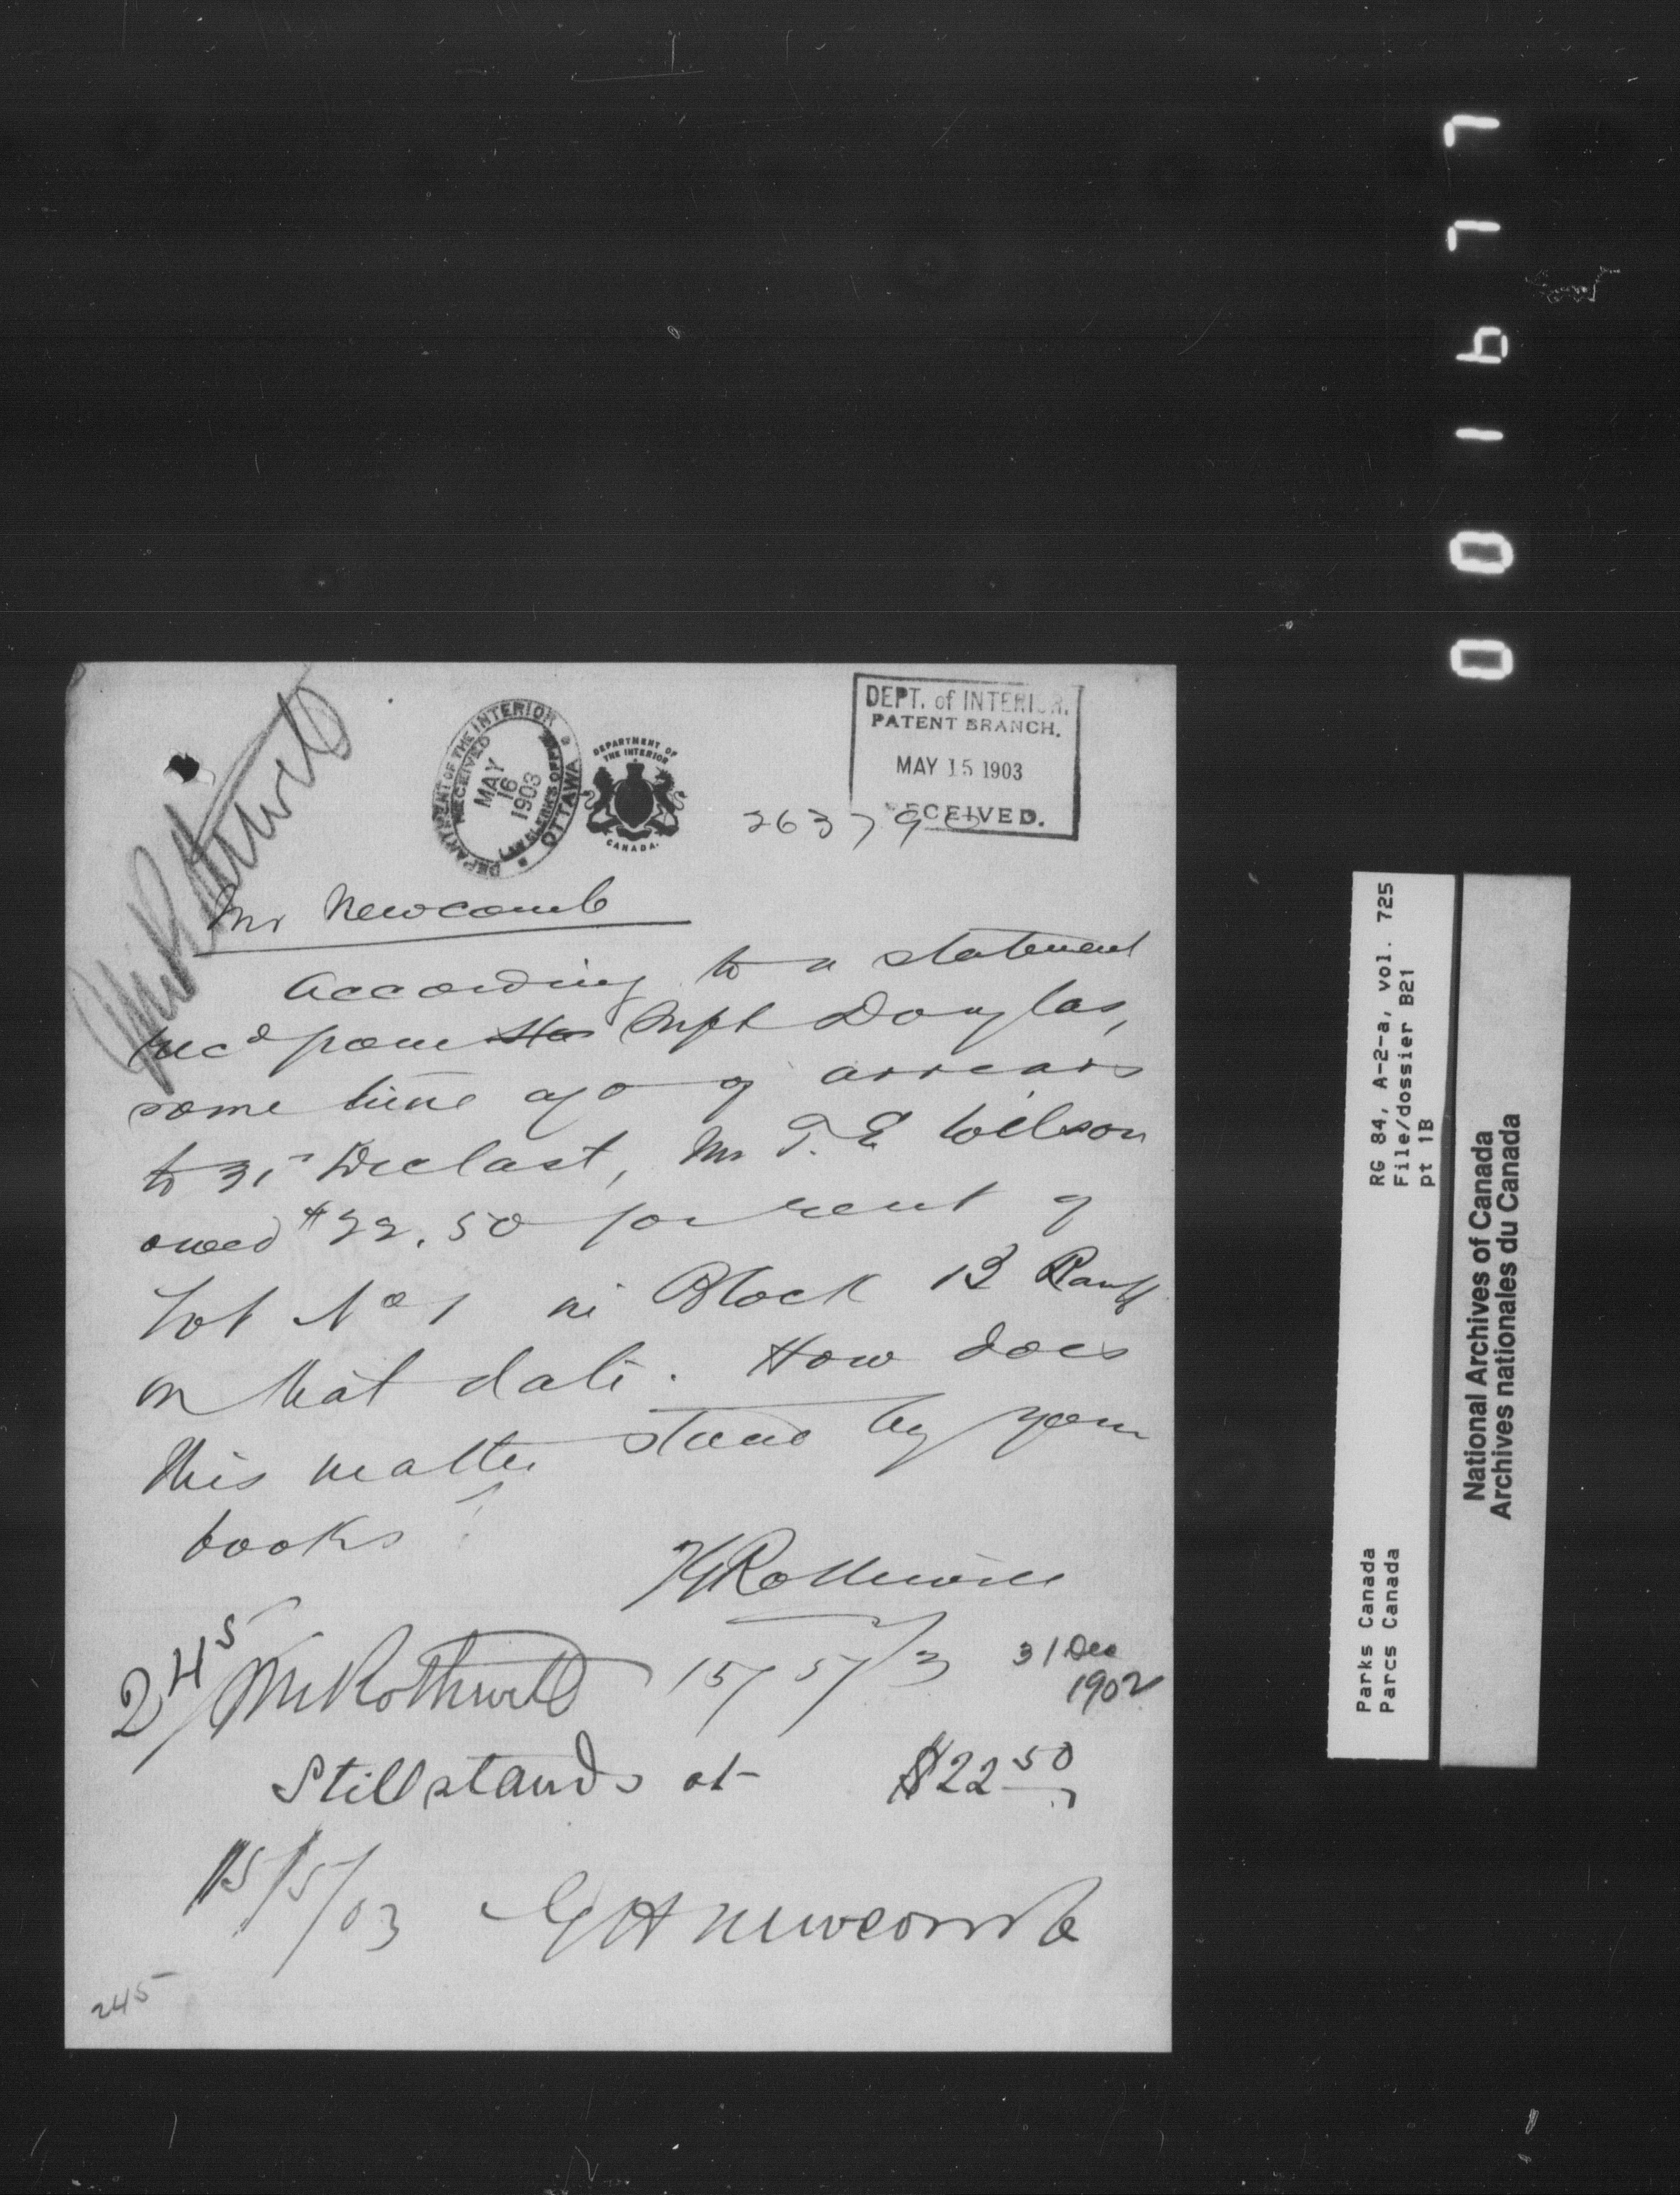 Mr Rothwell
DEPARTMENT OF THE INTERIOR
RECEIVED
MAY
16
1903
LAW CLERK'S OFFICE
OTTAWA
DEPARTMENT OF
THE INTERIOR
CANADA.
DEPT. of INTERIOR.
PATENT BRANCH.
MAY 15 1903
RECEIVED.
263790
Mr Newcomb
According to a statement
recd from Supt Douglas,
some time ago of arrears
to 31st Dec last, Mr T. E Wilson
owed $22.50 for rent of
Lot No 1 in Block 13 Banff
on that date. How does
this matter stand by your
books?
TG Rothwell
15/5/3
245
Mr Rothwell
31 Dec
1902
Still stands at $22 50
15/5/03 GH Newcomb
245
001677
RG 84, A-2-a, vol. 725
File/dossier B21
pt 1B
Parks Canada
Parcs Canada
National Archives of Canada
Archives nationales du Canada